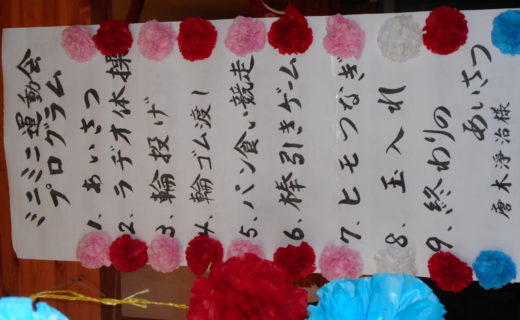 ミニミニ運動会
プログラム
1、あいさつ
2、ラヂオ体操
3、輪投げ
4、輪ゴム渡し
5、パン食い競走
6、棒引きゲーム
7、ヒモつなぎ
8、玉入れ
9、終わりの
あいさつ
唐木淨治様